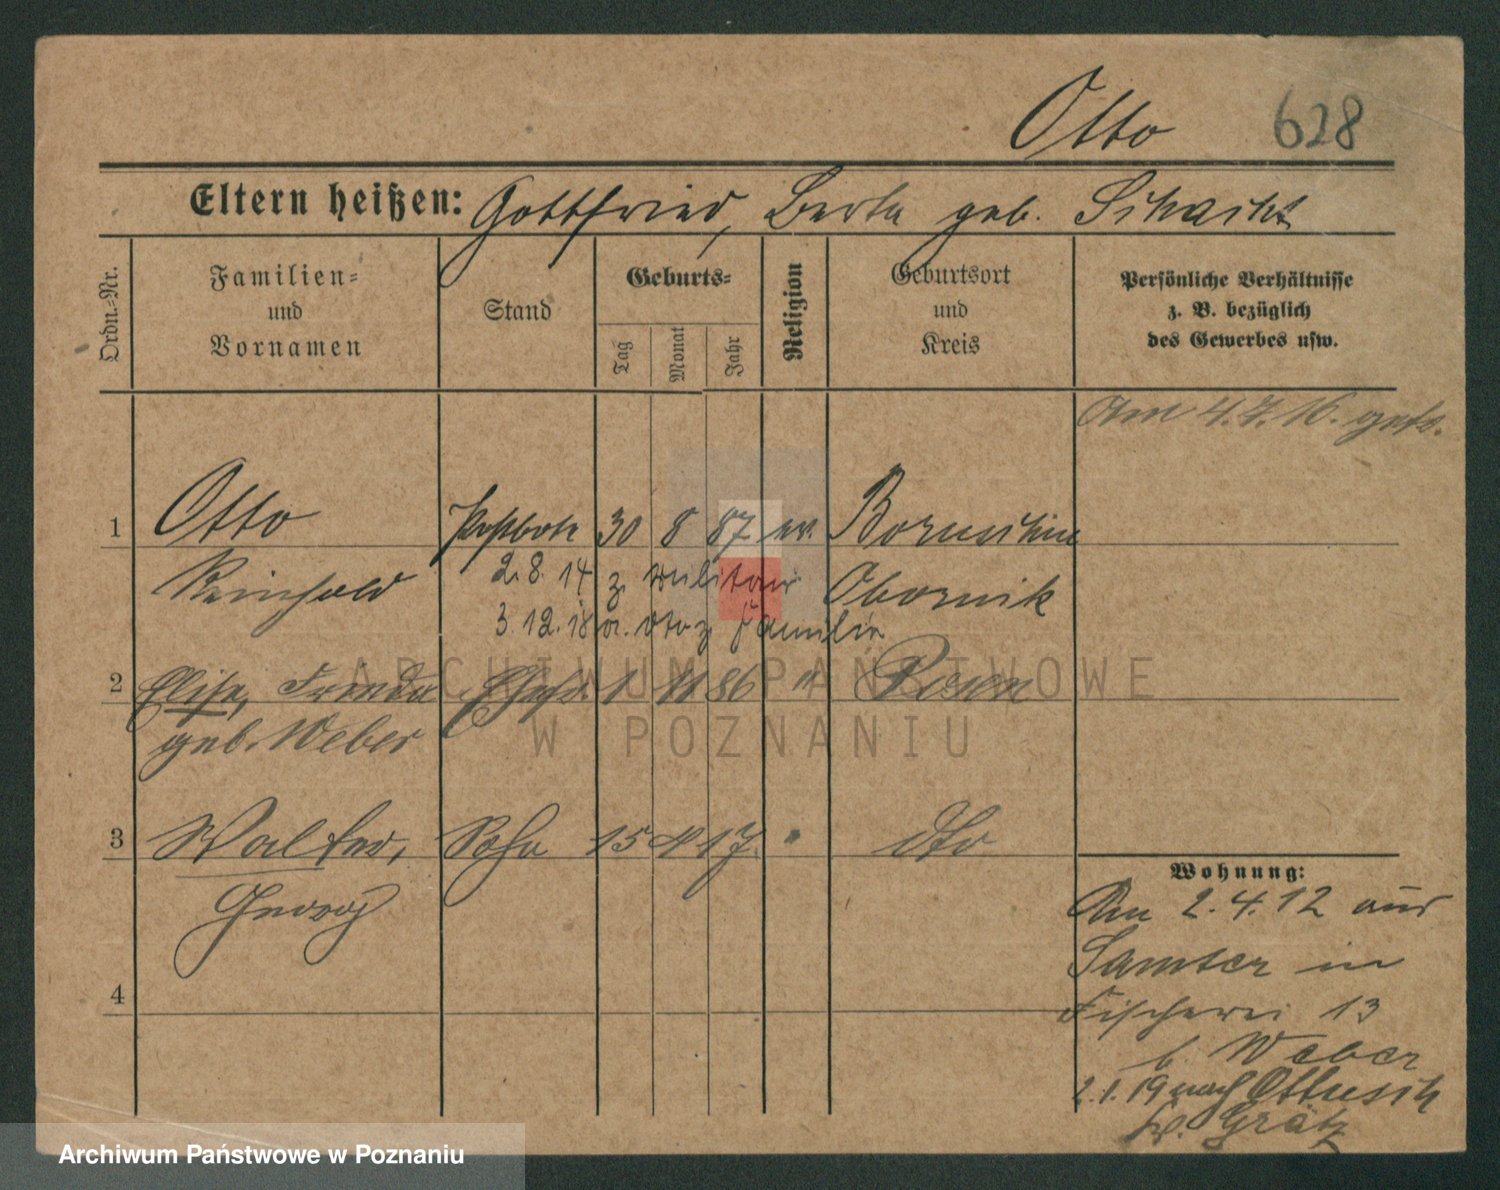 Otto 628
Eltern heißen: Gottfried, Berta geb. Schacht
Ordn.-Nr.
Familien-
und
Vornamen
Stand
Geburts-
Tag
Monat
Jahr
Religion
Geburtsort
und
Kreis
Persönliche Verhältnisse
z. B. bezüglich
des Gewerbes usw.
Am 4.7.16. getr.
1 Otto Postbote 30 8 87 ev. Boruschin
Reinhold 2.8.14 z. Militär Obornik
3.12.18 v. dto z. Familie
2 Elise, Frieda Ehefr. 1 11 86 " Posen
geb. Weber
3 Walter, Sohn 15 4 17 " dto
Georg
4
Wohnung:
Am 2.4.12 aus
Samter in
Fischerei 13
b. Weber
2.1.19 nach Ottusch
Kr. Grätz
ARCHIWUM PAŃSTWOWE
W POZNANIU
Archiwum Państwowe w Poznaniu